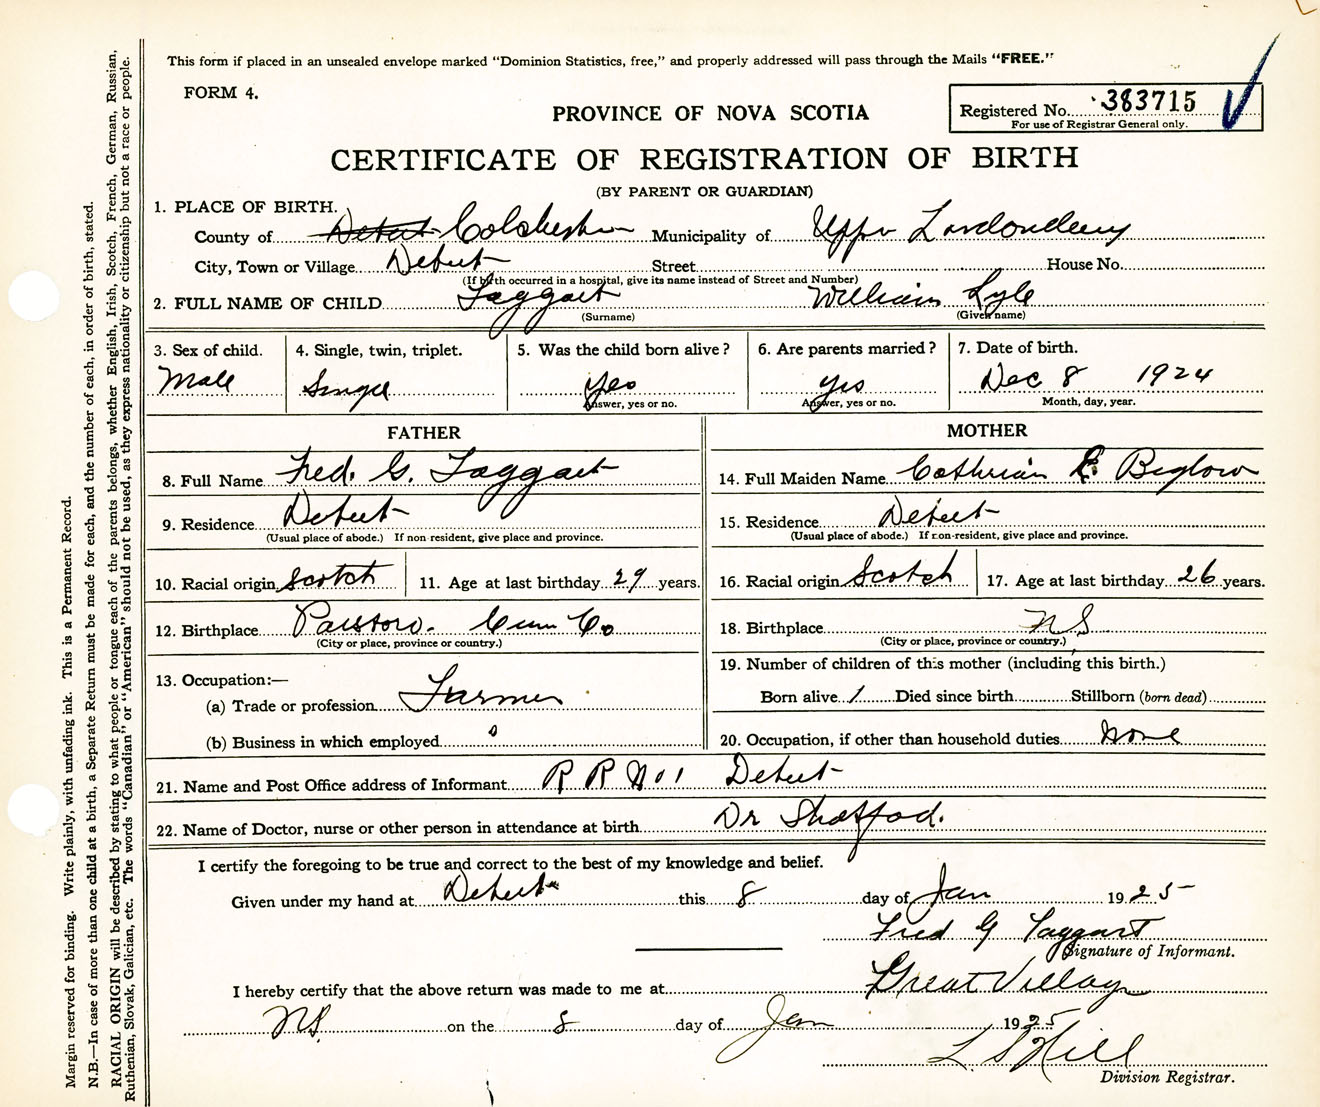 This form if placed in an unsealed envelope marked "Dominion Statistics, free," and properly addressed will pass through the Mails "FREE."
FORM 4.
PROVINCE OF NOVA SCOTIA
Registered No. 383715
For use of Registrar General only.
CERTIFICATE OF REGISTRATION OF BIRTH
(BY PARENT OR GUARDIAN)
1. PLACE OF BIRTH.
County of Debert Colchester Municipality of Upper Londonderry
City, Town or Village Debert Street House No.
(If birth occurred in a hospital, give its name instead of Street and Number)
2. FULL NAME OF CHILD Taggart William Lyle
(Surname) (Given name)
3. Sex of child. 4. Single, twin, triplet. 5. Was the child born alive? 6. Are parents married? 7. Date of birth.
Male Single Yes Yes Dec 8 1924
Answer, yes or no. Answer, yes or no. Month, day, year.
FATHER MOTHER
8. Full Name Fred. G. Taggart 14. Full Maiden Name Cathrian E. Biglow
9. Residence Debert 15. Residence Debert
(Usual place of abode.) If non-resident, give place and province. (Usual place of abode.) If non-resident, give place and province.
10. Racial origin Scotch 11. Age at last birthday 29 years. 16. Racial origin Scotch 17. Age at last birthday 26 years.
12. Birthplace Parrsboro. Cum Co 18. Birthplace N S
(City or place, province or country.) (City or place, province or country.)
13. Occupation:— 19. Number of children of this mother (including this birth.)
(a) Trade or profession Farmer Born alive 1 Died since birth Stillborn (born dead)
(b) Business in which employed 20. Occupation, if other than household duties None
21. Name and Post Office address of Informant R R No 1 Debert
22. Name of Doctor, nurse or other person in attendance at birth Dr Shafford.
I certify the foregoing to be true and correct to the best of my knowledge and belief.
Given under my hand at Debert this 8 day of Jan 1925
Fred G Taggart
Signature of Informant.
I hereby certify that the above return was made to me at Great Village
NS. on the 8 day of Jan 1925
L S Hill
Division Registrar.
Margin reserved for binding. Write plainly, with unfading ink. This is a Permanent Record.
N.B.—In case of more than one child at a birth, a Separate Return must be made for each, and the number of each, in order of birth, stated.
RACIAL ORIGIN will be described by stating to what people or tongue each of the parents belongs, whether English, Irish, Scotch, French, German, Russian,
Ruthenian, Slovak, Galician, etc. The words "Canadian" or "American" should not be used, as they express nationality or citizenship but not a race or people.